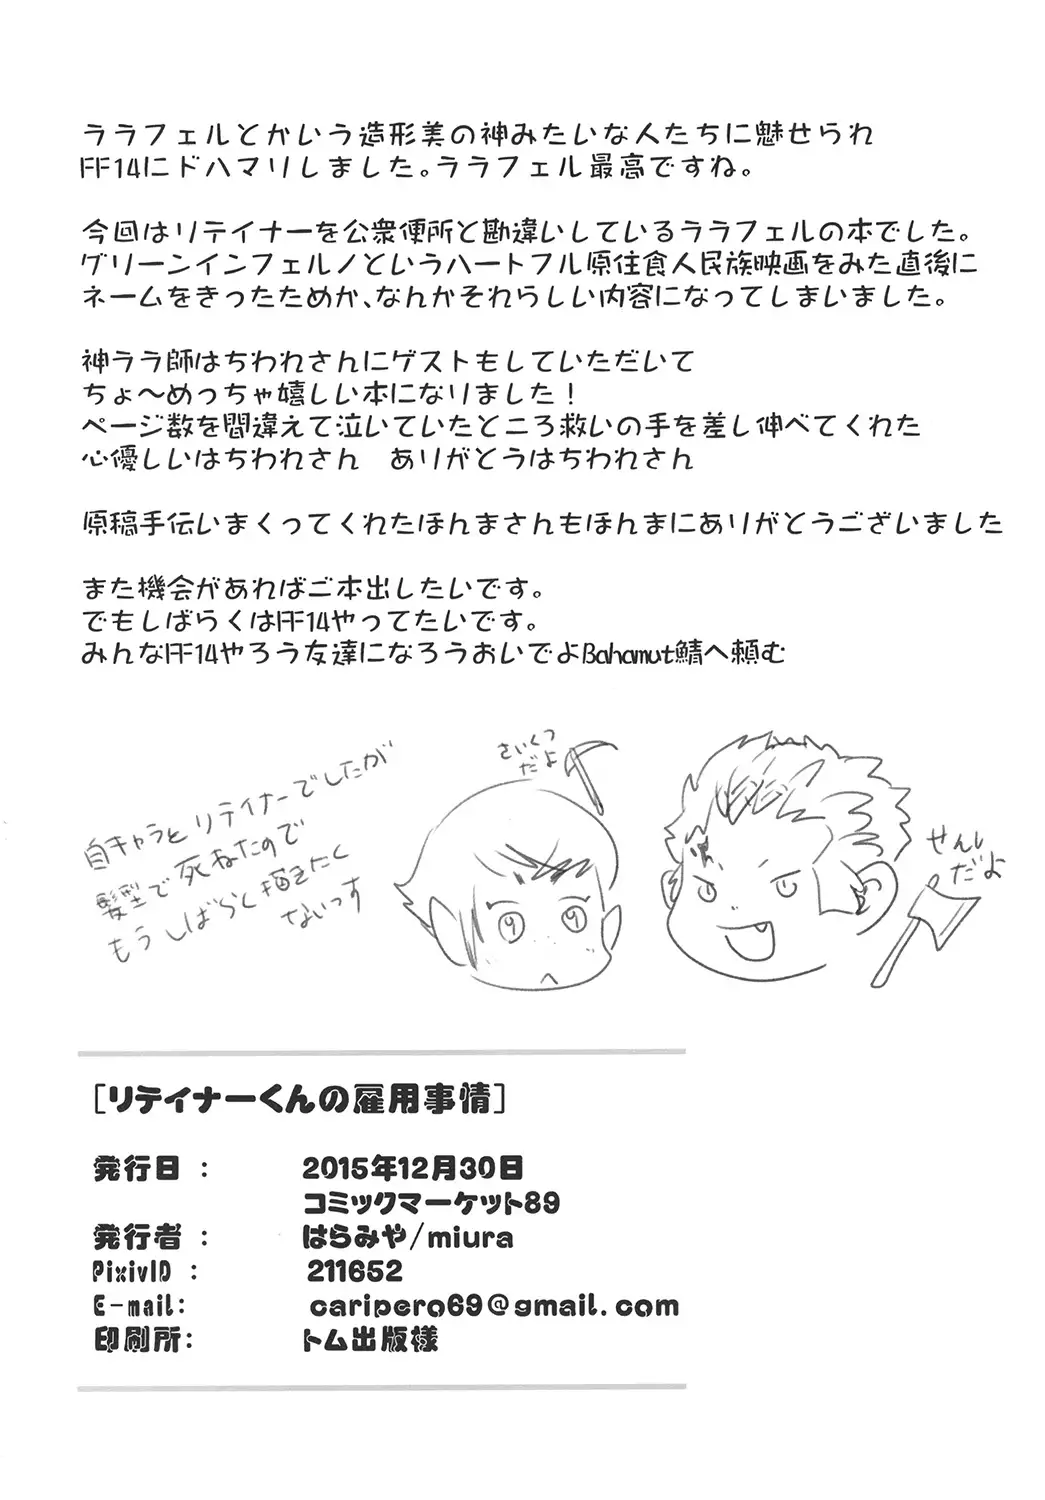 ララフェルとかいう造形美の神みたいな人たちに魅せられ
FF14にドハマりしました。ララフェル最高ですね。
今回はリテイナーを公衆便所と勘違いしているララフェルの本でした。
グリーンインフェルノというハートフル原住食人民族映画をみた直後に
ネームをきったためか、なんかそれらしい内容になってしまいました。
神ララ師はちわれさんにゲストもしていただいて
ちょ～めっちゃ嬉しい本になりました！
ページ数を間違えて泣いていたところ救いの手を差し伸べてくれた
心優しいはちわれさん　ありがとうはちわれさん
原稿手伝いまくってくれたほんまさんもほんまにありがとうございました
また機会があればご本出したいです。
でもしばらくはFF14やってたいです。
みんなFF14やろう友達になろうおいでよBahamut鯖へ頼む
自キャラとリテイナーでしたが
髪型で死ねたので
もうしばらく描きたく
ないっす
さいくつ
だよ
せんし
だよ
[リテイナーくんの雇用事情]
発行日 : 2015年12月30日
コミックマーケット89
発行者 : はらみや/miura
PixivID : 211652
E-mail: caripero69@gmail.com
印刷所: トム出版様